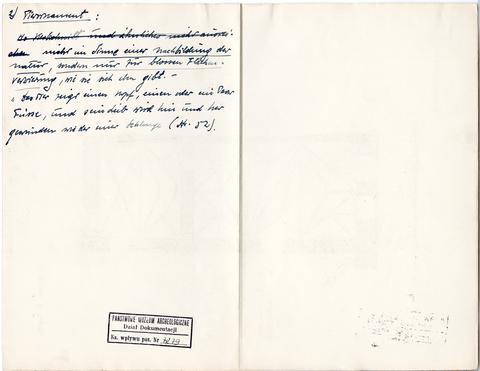 Tierornament:
nicht im Sinne einer Nachbildung der
Natur, sondern nur für blossen Flächen-
verzierung, wie sie sich eben gibt. –
„ Das Tier zeigt einen Kopf, einen oder ein Paar
Füsse, und sein Leib wird hin und her
gewunden wie der einer Schlange (At. 52).
PAŃSTWOWE MUZEUM ARCHEOLOGICZNE
Dział Dokumentacji
Ks. wpływu poz. Nr